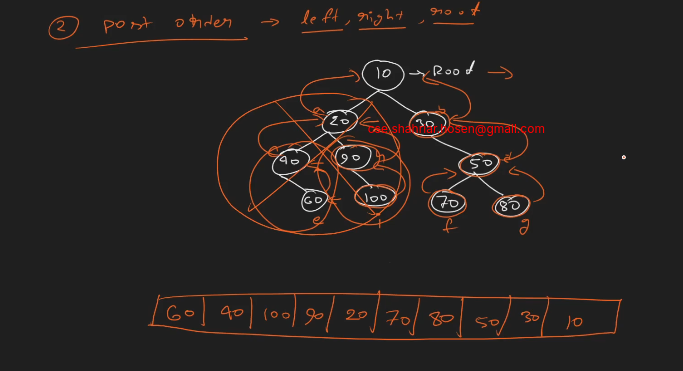 ② post order → left, right, root
10 → Root →
20 30
cse.shahriar.hosen@gmail.com
40 90 50
60 100 70 80
e f g
60 40 100 90 20 70 80 50 30 10